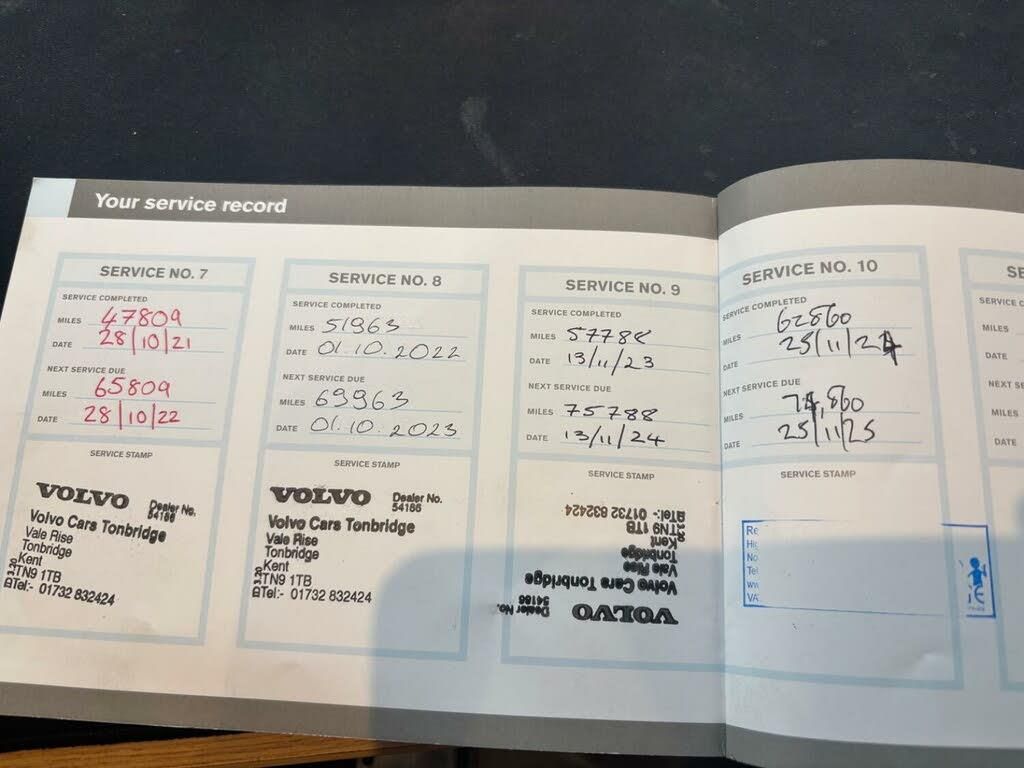 Your service record
SERVICE NO. 7
SERVICE COMPLETED
MILES 47809
DATE 28/10/21
NEXT SERVICE DUE
MILES 65809
DATE 28/10/22
SERVICE STAMP
VOLVO Dealer No. 54186
Volvo Cars Tonbridge
Vale Rise
Tonbridge
Kent
TN9 1TB
Tel:- 01732 832424
SERVICE NO. 8
SERVICE COMPLETED
MILES 51963
DATE 01.10.2022
NEXT SERVICE DUE
MILES 69963
DATE 01.10.2023
SERVICE STAMP
VOLVO Dealer No. 54186
Volvo Cars Tonbridge
Vale Rise
Tonbridge
Kent
TN9 1TB
Tel:- 01732 832424
SERVICE NO. 9
SERVICE COMPLETED
MILES 57788
DATE 13/11/23
NEXT SERVICE DUE
MILES 75788
DATE 13/11/24
SERVICE STAMP
VOLVO Dealer No. 54186
Volvo Cars Tonbridge
Vale Rise
Tonbridge
Kent
TN9 1TB
Tel:- 01732 832424
SERVICE NO. 10
SERVICE COMPLETED
MILES 62860
DATE 25/11/24
NEXT SERVICE DUE
MILES
DATE 25/11/25
SERVICE STAMP
Re
Hig
No
Tel
ww
VA
SE
SERVICE C
MILES
DATE
NEXT SE
MILES
DATE